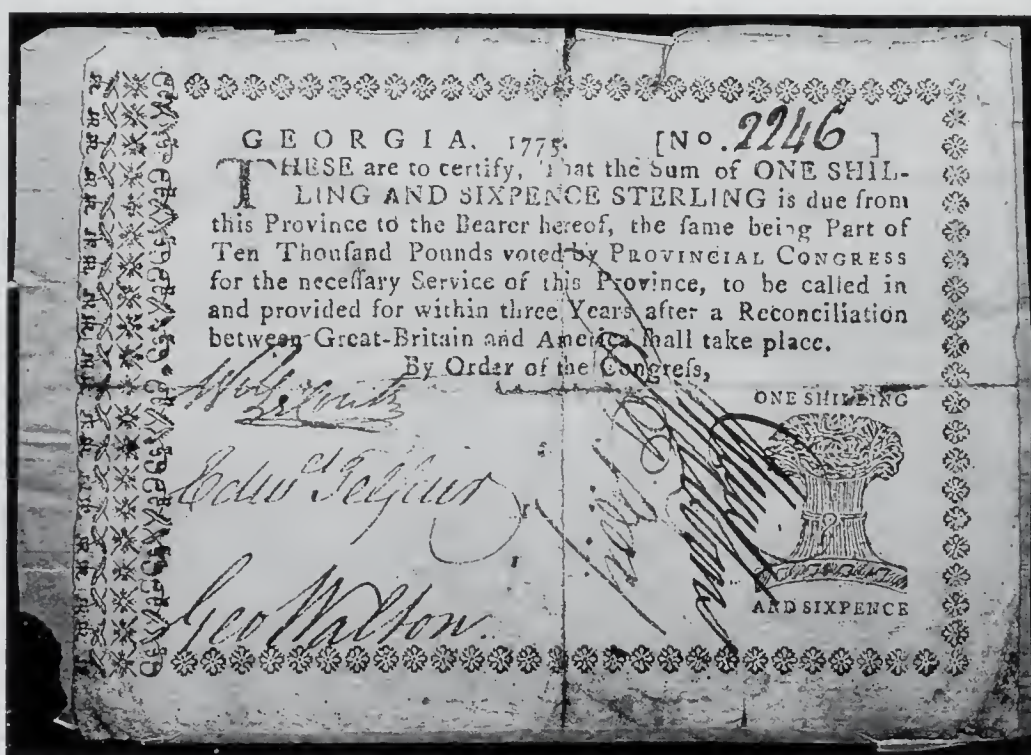 GEORGIA. 1775. [No. 2246 ]
THESE are to certify, That the Sum of ONE SHIL-
LING AND SIXPENCE STERLING is due from
this Province to the Bearer hereof, the ſame being Part of
Ten Thouſand Pounds voted by PROVINCIAL CONGRESS
for the neceſſary Service of this Province, to be called in
and provided for within three Years after a Reconciliation
between Great-Britain and America ſhall take place.
By Order of the Congreſs,
ONE SHILLING
Edwd Telfair
Geo Walton.
AND SIXPENCE